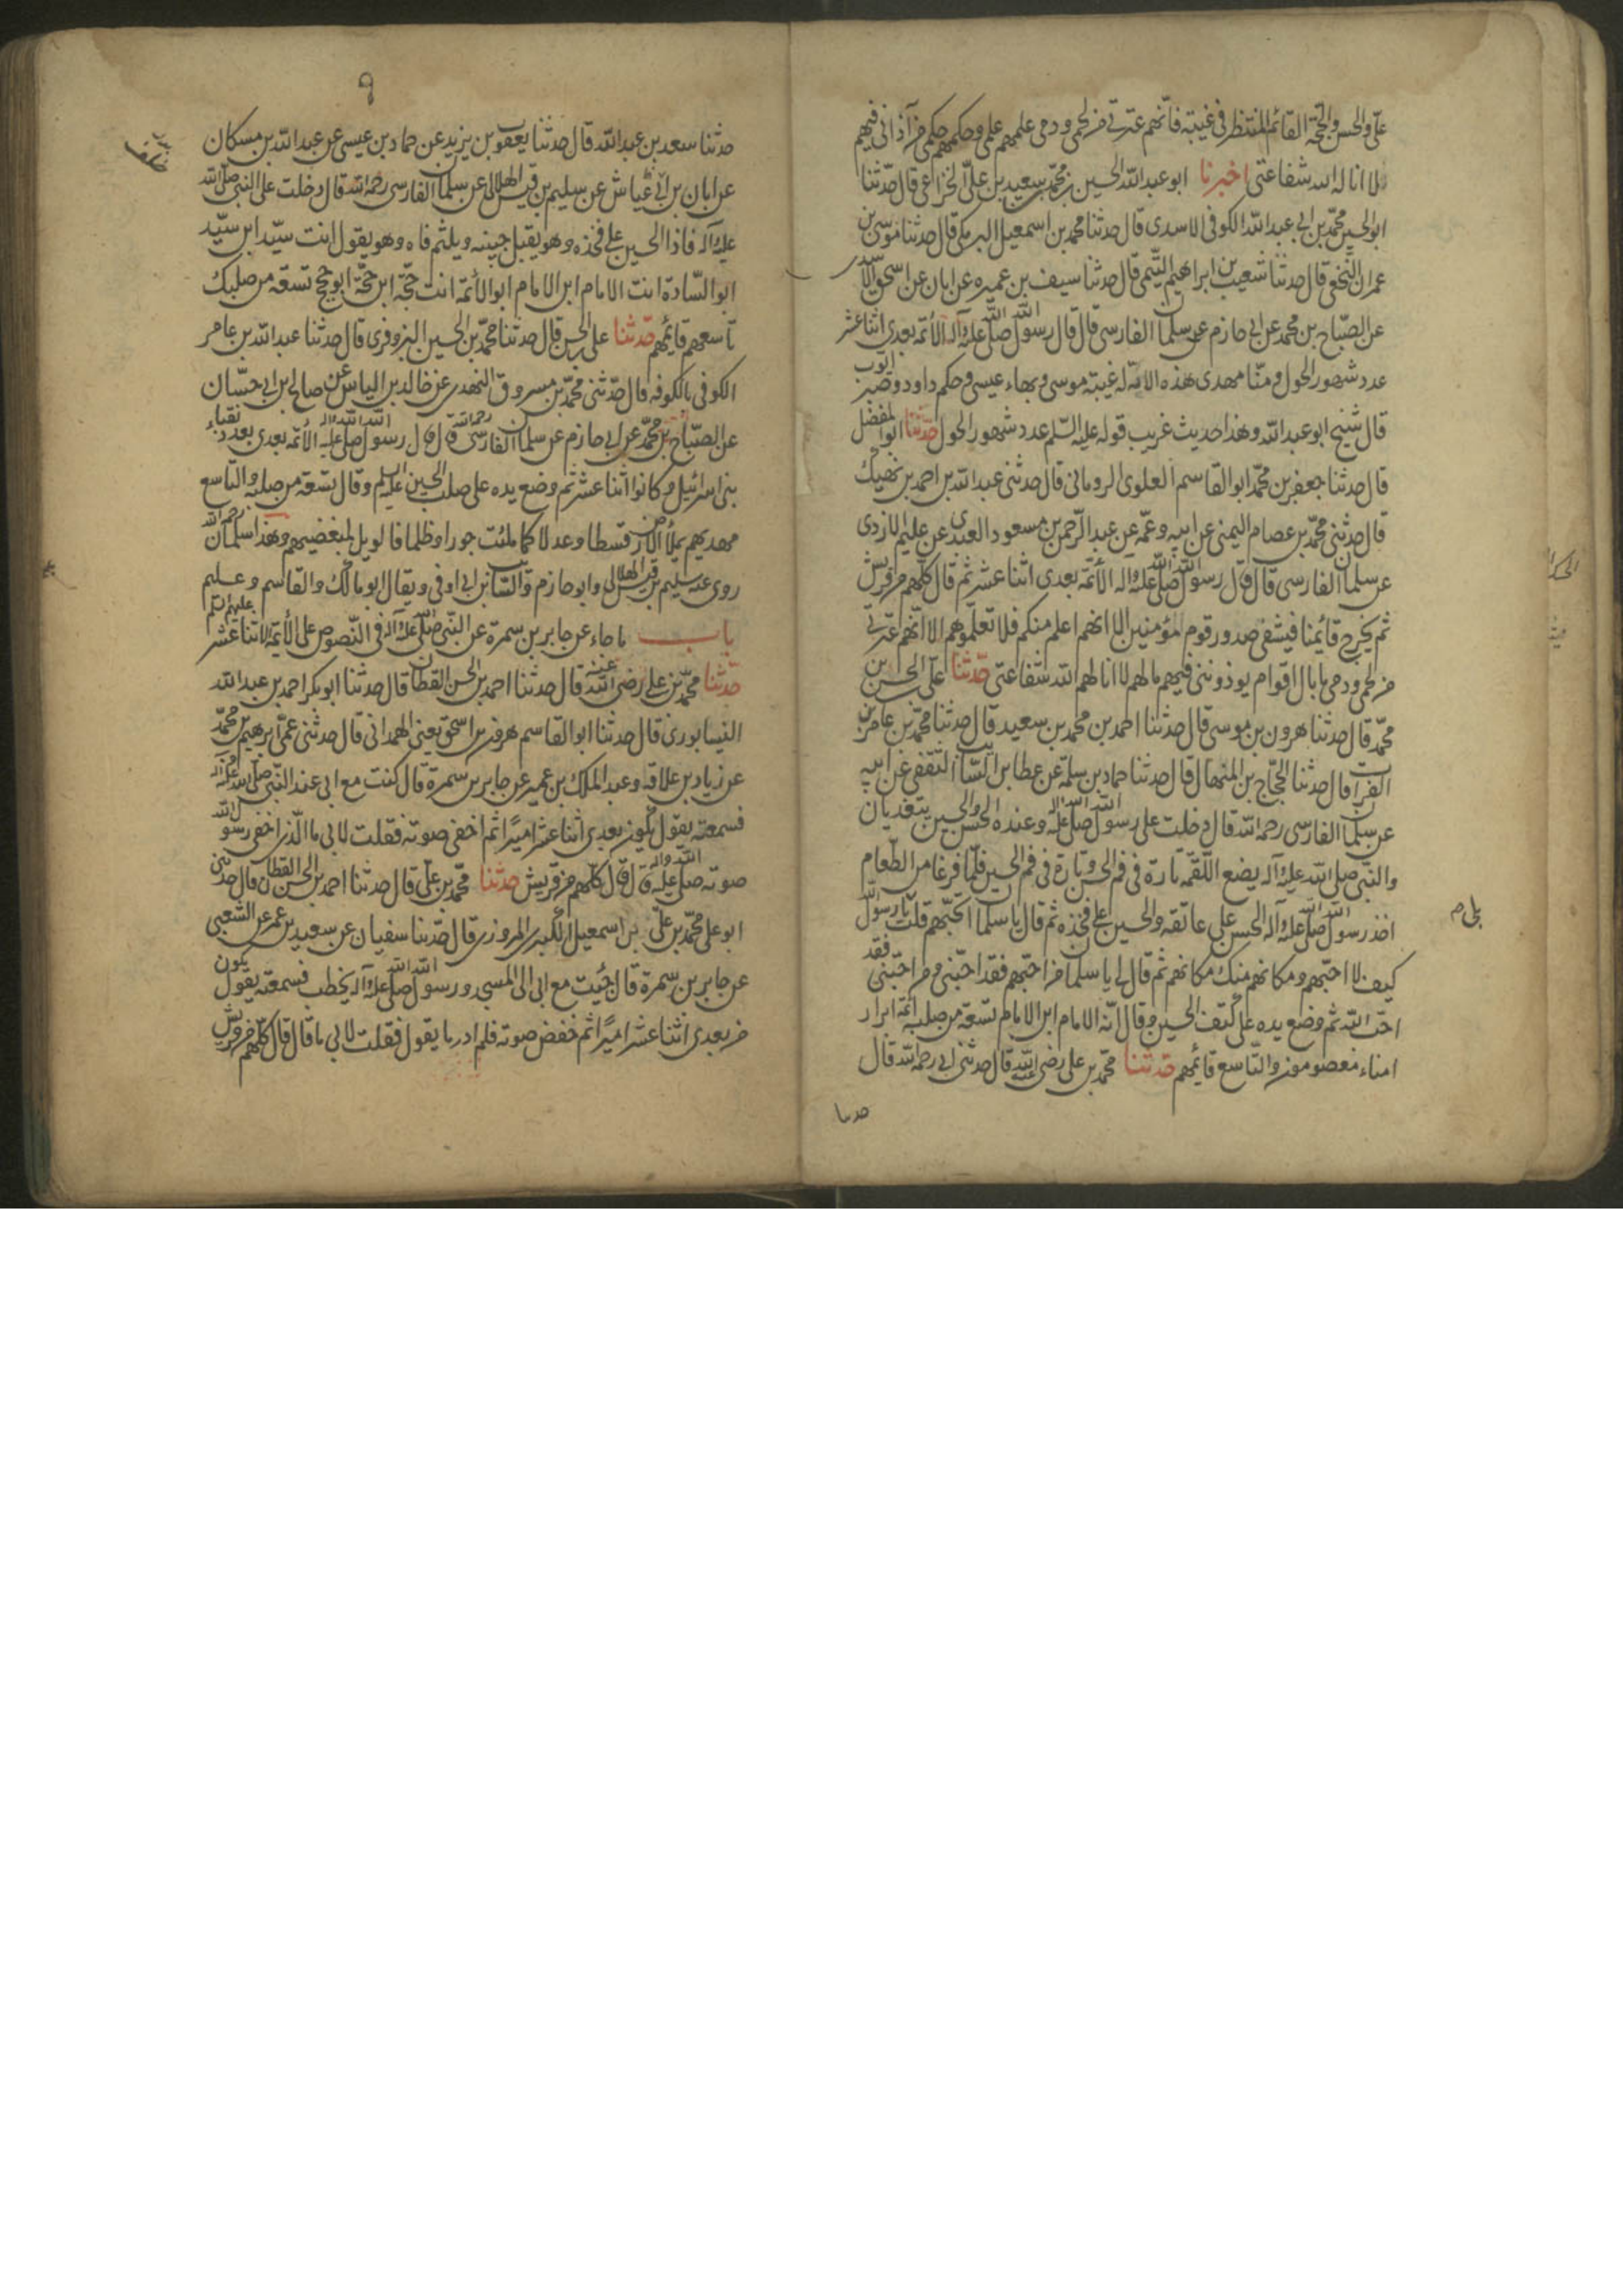 علي والحسن والحجة القائم المنتظر في غيبته فانهم عترتي من لحمي ودمي علمهم علمي وحكمهم حكمي من آذاني فيهم
لا اناله الله شفاعتي اخبرنا ابو عبدالله الحسين بن محمد بن سعيد بن علي الخزاعي قال حدثنا
ابو الحسين محمد بن ابي عبدالله الكوفي الاسدي قال حدثنا محمد بن اسمعيل البرمكي قال حدثنا موسى بن
عمران النخعي قال حدثنا شعيب بن ابراهيم التيمي قال حدثنا سيف بن عميره عن ابان عن اسحق الاسدي
عن الصباح بن محمد عن ابي حازم عن سلمان الفارسي قال قال رسول الله صلى الله عليه وآله الائمة بعدي اثنا عشر
عدد شهور الحول ومنا مهدي هذه الامة له غيبة موسى وبهاء عيسى وحكم داود وصبر ايوب
قال شيخ ابو عبدالله وهذا حديث غريب قوله عليه السلم عدد شهور الحول حدثنا ابو المفضل
قال حدثنا جعفر بن محمد ابو القاسم العلوي الروماني قال حدثني عبدالله بن احمد بن نهيك
قال حدثني محمد بن عصام اليمني عن ابيه وعمه عن عبد الرحمن بن مسعود العبدي عن عليم الازدي
عن سلمان الفارسي قال قال رسول الله صلى الله عليه وآله الائمة بعدي اثنا عشر ثم قال كلهم من قريش
ثم يخرج قائمنا فيشفي صدور قوم مؤمنين الا انهم اعلم منكم فلا تعلموهم الا انهم عترتي
من لحمي ودمي ما بال اقوام يوذونني فيهم مالهم لا انالهم الله شفاعتي حدثنا علي بن الحسن بن
محمد قال حدثنا هرون بن موسى قال حدثنا احمد بن محمد بن سعيد قال حدثنا محمد بن عامر بن
الفرات قال حدثنا الحجاج بن المنهال قال حدثنا حماد بن سلمة عن عطا بن السائب الثقفي عن ابيه
عن سلمان الفارسي رحمه الله قال دخلت على رسول الله صلى الله عليه وآله وعنده الحسن والحسين يتغديان
والنبي صلى الله عليه وآله يضع اللقمة تارة في فم الحسن وتارة في فم الحسين فلما فرغا من الطعام
اخذ رسول الله صلى الله عليه وآله الحسن على عاتقه والحسين على فخذه ثم قال يا سلمان اتحبهم قلت يا رسول الله
بلى م
كيف لا احبهم ومكانهم منك مكانهم ثم قال لي يا سلمان من احبهم فقد احبني ومن احبني فقد
احب الله ثم وضع يده على كتف الحسين وقال انه الامام ابن الامام تسعة من صلبه ائمة ابرار
امناء معصومون والتاسع قائمهم حدثنا محمد بن علي رضي الله عنه قال حدثني ابي رحمه الله قال
حدثنا
٩
حدثنا سعد بن عبدالله قال حدثنا يعقوب بن يزيد عن حماد بن عيسى عن عبدالله بن مسكان
عن ابان بن ابي عياش عن سليم بن قيس الهلالي عن سلمان الفارسي رحمه الله قال دخلت على النبي صلى الله
عليه وآله فاذا الحسين على فخذه وهو يقبل جبينه ويلثم فاه وهو يقول انت سيد ابن سيد
ابو السادة انت الامام ابن الامام ابو الائمة انت حجة ابن حجة ابو حجج تسعة من صلبك
تاسعهم قائمهم حدثنا علي بن الحسن قال حدثنا محمد بن الحسين البزوفري قال حدثنا عبدالله بن عامر
الكوفي بالكوفه قال حدثني محمد بن مسروق النهدي عن خالد بن الياس عن صالح بن ابي حسان
عن الصباح بن محمد عن ابي حازم عن سلمان الفارسي رحمه الله قال قال رسول الله صلى الله عليه وآله الائمة بعدي بعدد نقباء
بني اسرائيل وكانوا اثنا عشر ثم وضع يده على صلب الحسين عليه السلم وقال تسعة من صلبه والتاسع
مهديهم يملأ الارض قسطا وعدلا كما ملئت جورا وظلما فالويل لمبغضيهم وهذا سلمان رحمه الله
روى عنه سليم بن قيس الهلالي وابو حازم والسائب بن ابي اوفى ويقال ابو مالك والقاسم وعليم
باب ما جاء عن جابر بن سمرة عن النبي صلى الله عليه وآله في النصوص على الائمة الاثنا عشر عليهم السلم
حدثنا محمد بن علي رضي الله عنه قال حدثنا احمد بن الحسن القطان قال حدثنا ابو بكر احمد بن عبدالله
النيسابوري قال حدثنا ابو القاسم هرون بن اسحق يعني الهمداني قال حدثني عمي ابرهيم بن محمد
عن زياد بن علاقه وعبد الملك بن عمير عن جابر بن سمرة قال كنت مع ابي عند النبي صلى الله عليه وآله
فسمعته يقول يكون بعدي اثنا عشر اميرا ثم اخفى صوته فقلت لابي ما الذي اخفى رسول الله
صوته صلى الله عليه وآله قال قال كلهم من قريش حدثنا محمد بن علي قال حدثنا احمد بن الحسن القطان قال حدثني
ابو علي محمد بن علي بن اسمعيل السكري المروزي قال حدثنا سفيان عن سعيد بن عمر عن الشعبي
عن جابر بن سمرة قال جئت مع ابي الى المسجد ورسول الله صلى الله عليه وآله يخطب فسمعته يقول يكون
من بعدي اثنا عشر اميرا ثم خفض صوته فلم ادر ما يقول فقلت لابي ما قال قال كلهم من قريش